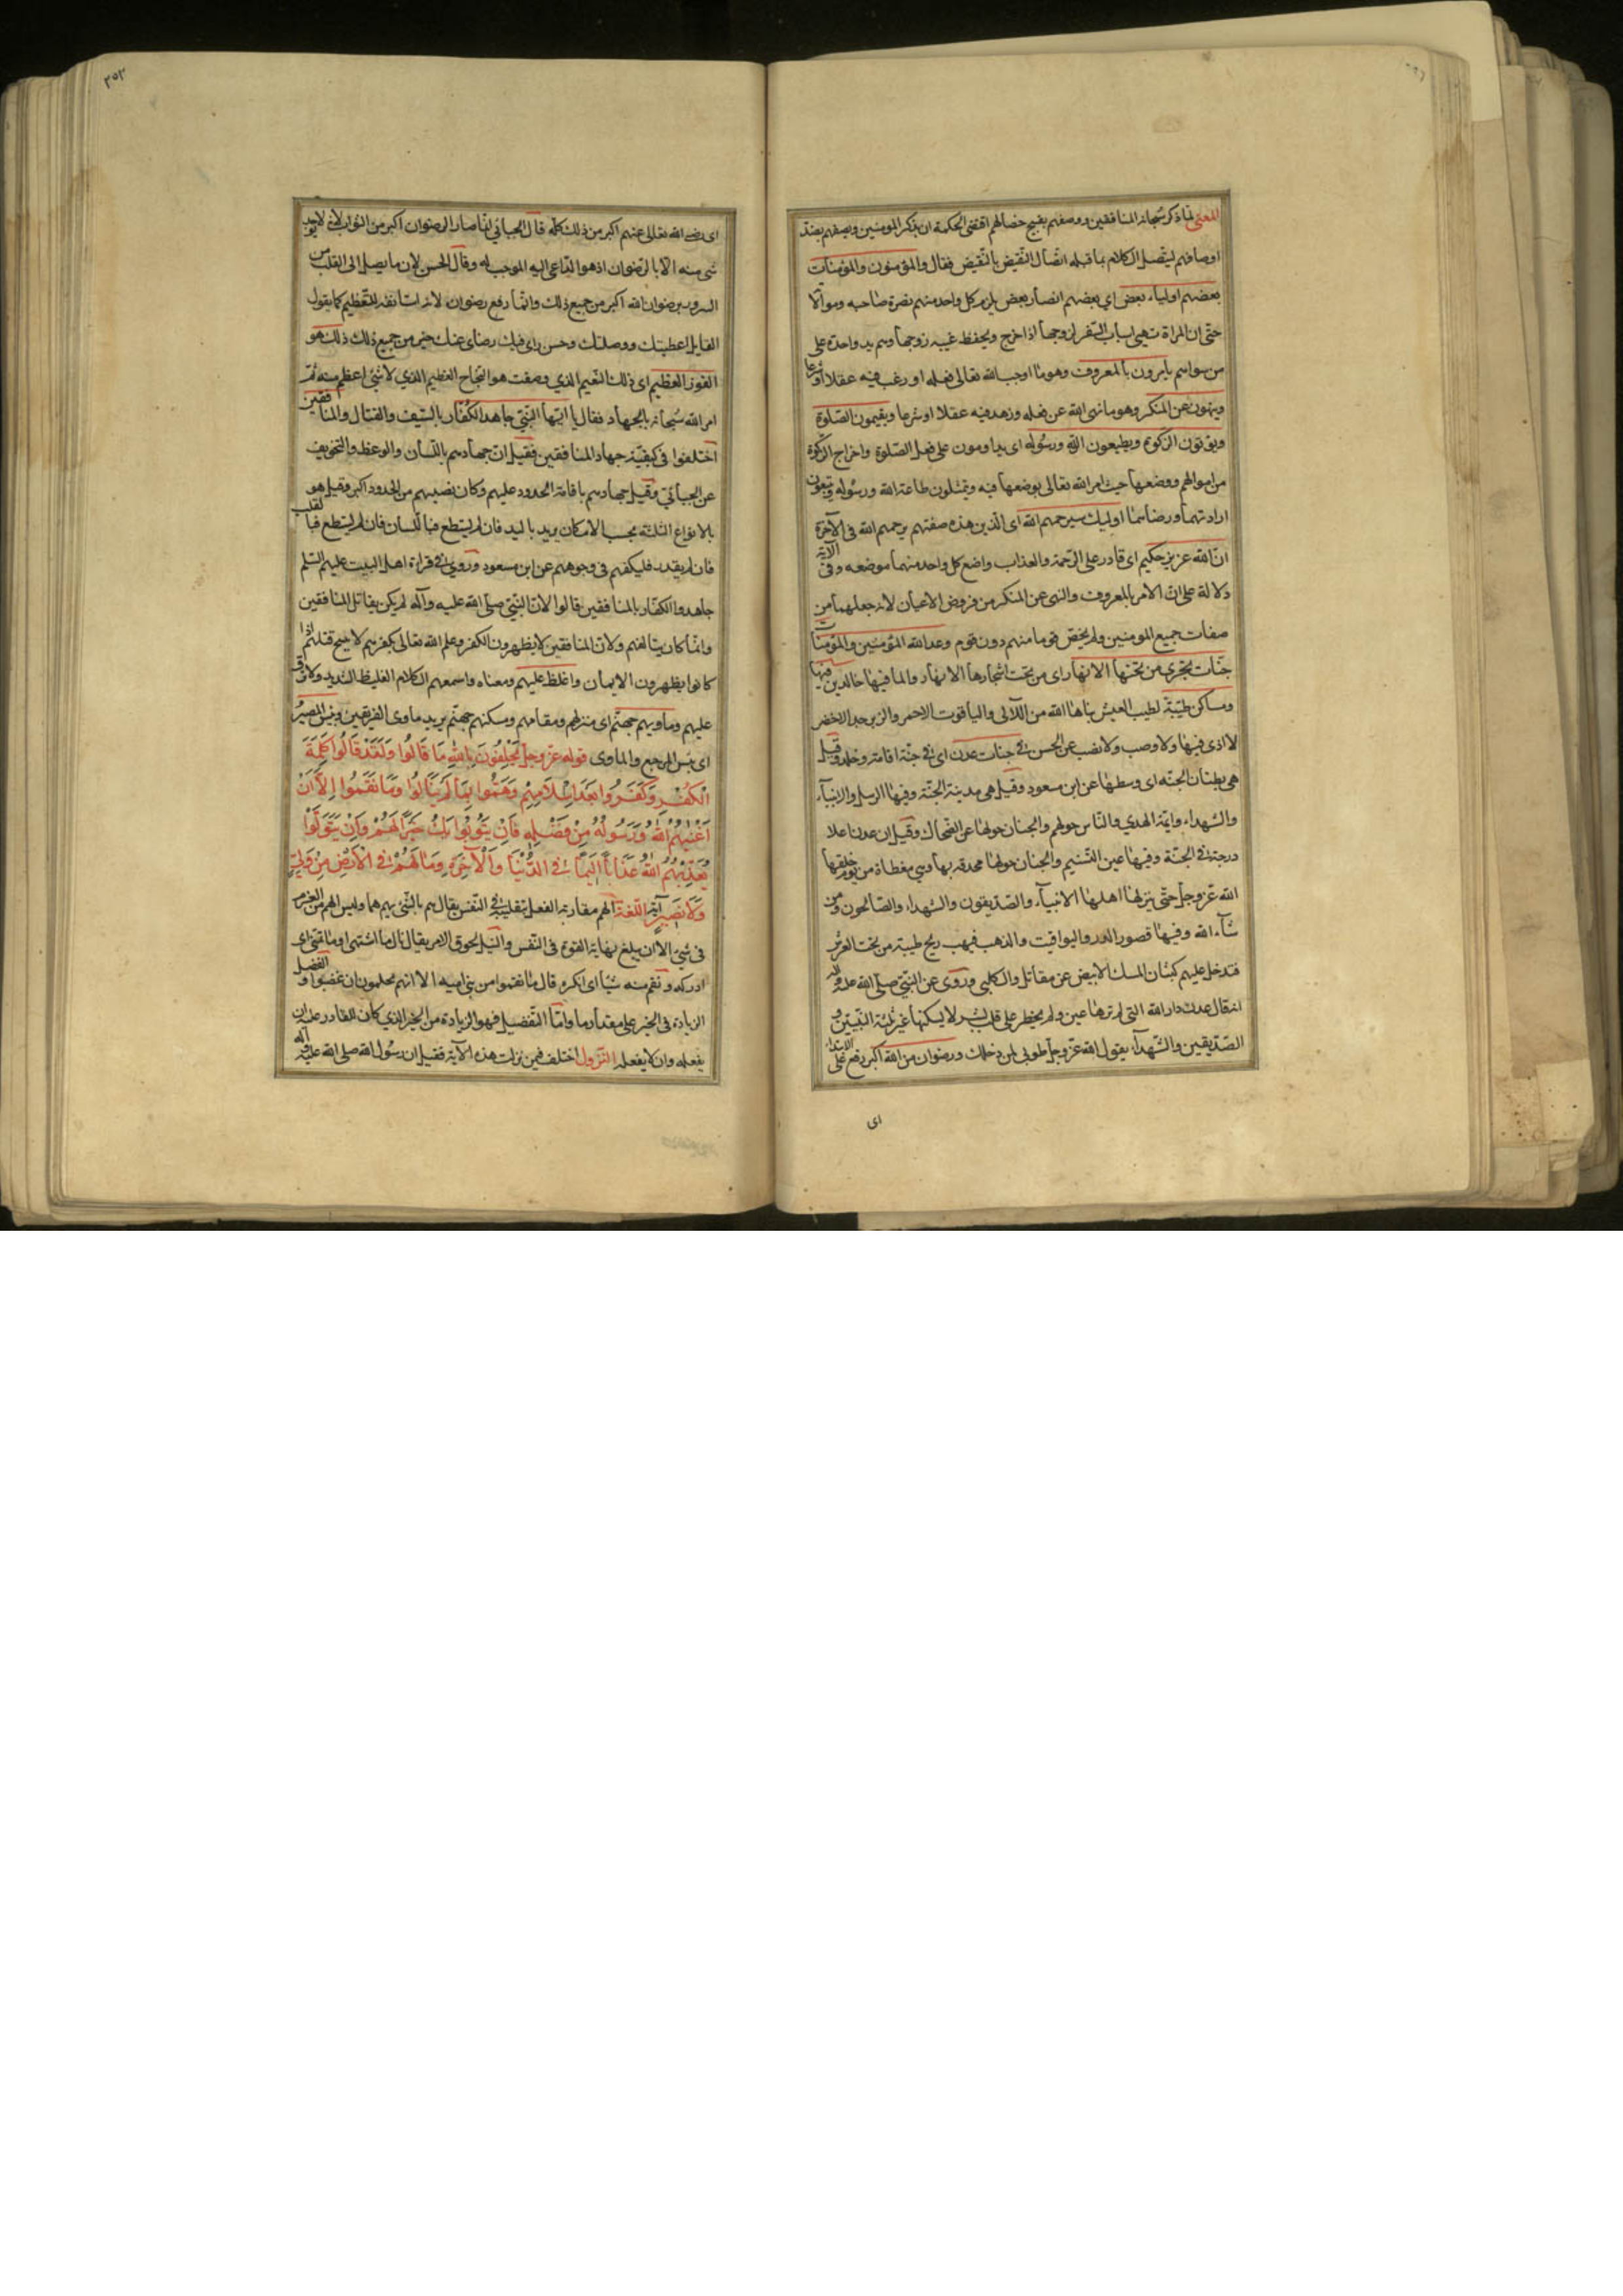 المعنى لما ذكر سبحانه المنافقين ووصفهم بقبيح خصالهم اقتضى الحكمة ان يذكر المومنين ويصفهم بضد
اوصافهم ليتصل الكلام بما قبله اتصال النقيض بالنقيض فقال والمؤمنون والمؤمنات
بعضهم اولياء بعض اي بعضهم انصار بعض يلزم كل واحد منهم نصرة صاحبه وموالاته
حتى ان المراة تهيى اسباب السفر لزوجها اذا خرج ويحفظ غيبه زوجها وهم يد واحدة على
من سواهم يأمرون بالمعروف وهو ما اوجب الله تعالى فعله او رغب فيه عقلا او شرعا
وينهون عن المنكر وهو ما نهى الله عن فعله وزهد فيه عقلا او شرعا ويقيمون الصلوة
ويؤتون الزكوة ويطيعون الله ورسوله اى يداومون على فعل الصلوة واخراج الزكوة
من اموالهم ووضعها حيث امر الله تعالى بوضعها فيه ويمتثلون طاعة الله ورسوله ويتبعون
ارادتهما ورضاهما اوليك سيرحمهم الله اى الذين هذه صفتهم يرحمهم الله فى الآخرة
ان الله عزيز حكيم اى قادر على الرحمة والعذاب واضع كل واحد منهما موضعه وفى الآية
دلالة على ان الامر بالمعروف والنهى عن المنكر من فروض الاعيان لانه جعلهما من
صفات جميع المومنين ولم يخص قوما منهم دون قوم وعد الله المؤمنين والمؤمنات
جنات تجرى من تحتها الانهار اى من تحت اشجارها الانهار والما فيها خالدين فيها
ومساكن طيبة لطيب العيش بناها الله من اللآلى والياقوت الاحمر والزبرجد الاخضر
لا اذى فيها ولا وصب ولا نصب عن الحسن فى جنات عدن اى فى جنة اقامة وخلد وقيل
هى بطنان الجنه اى وسطها عن ابن مسعود وقيل هى مدينة الجنة وفيها الرسل والانبياء
والشهداء وايمة الهدي والناس حولهم والجنان حولها عن الضحاك وقيل ان عدنا اعلا
درجة فى الجنة وفيها عين التسنيم والجنان حولها محدقه بها وهي مغطاة من يوم خلقها
الله عز وجل حتى ينزلها اهلها الانبياء والصديقون والشهداء والصالحون ومن
شاء الله وفيها قصور الدر واليواقيت والذهب فيهب ريح طيبة من تحت العرش
فتدخل عليهم كثبان المسك الابيض عن مقاتل والكلبي وروى عن النبي صلى الله عليه وآله
انه قال عدن دار الله التى لم ترها عين ولم يخطر على قلب بشر لا يسكنها غير ثلثة النبيين و
الصديقين والشهداء يقول الله عز وجل طوبى لمن دخلك ورضوان من الله اكبر رفع على الابتداء
اى
٣٥٢
اى رضى الله تعالى عنهم اكبر من ذلك كله قال الجبائي انما صار الرضوان اكبر من الثواب لانه لا يوجد
شى منه الا بالرضوان اذ هو الداعى اليه الموجب له وقال الحسن لان ما يصل الى القلب من
السرور برضوان الله اكبر من جميع ذلك وانما رفع رضوان لانه استانفه للتعظيم كما يقول
القايل اعطيتك ووصلتك وحسن راى فيك رضاى عنك خير من جميع ذلك ذلك هو
الفوز العظيم اى ذلك النعيم الذي وصفت هو النجاح العظيم الذي لا شئ اعظم منه ثم
امر الله سبحانه بالجهاد فقال يا ايها النبي جاهد الكفار بالسيف والقتال والمنافقين
اختلفوا فى كيفية جهاد المنافقين فقيل ان جهادهم باللسان والوعظ والتخويف
عن الجبائي وقيل جهادهم باقامة الحدود عليهم وكان نصيبهم من الحدود اكبر وقيل هو
بالانواع الثلثة بحسب الامكان يريد باليد فان لم يستطع فباللسان فان لم يستطع فبالقلب
فان لم يقدر فليكفهر فى وجوههم عن ابن مسعود وروي فى قراءة اهل البيت عليهم السلم
جاهدوا الكفار بالمنافقين قالوا لان النبي صلى الله عليه وآله لم يكن يقاتل المنافقين
وانما كان يتالفهم ولان المنافقين لا يظهرون الكفر وعلم الله تعالى بكفرهم لا يبيح قتلهم اذا
كانوا يظهرون الايمان واغلظ عليهم ومعناه واسمعهم الكلام الغليظ الشديد ولا ترق
عليهم وماويهم جهنم اى منزلهم ومقامهم ومسكنهم جهنم يريد ماوى الفريقين وبئس المصير
اى بئس المرجع والماوى قوله عز وجل يَحْلِفُونَ بِاللهِ مَا قَالُوا وَلَقَدْ قَالُوا كَلِمَةَ
الْكُفْرِ وَكَفَرُوا بَعْدَ اِسْلَامِهِمْ وَهَمُّوا بِمَا لَمْ يَنَالُوا وَمَا نَقَمُوا اِلَّا اَنْ
اَغْنٰهُمُ اللهُ وَرَسُولُهُ مِنْ فَضْلِهِ فَاِنْ يَتُوبُوا يَكُ خَيْرًا لَهُمْ وَاِنْ يَتَوَلَّوْا
يُعَذِّبْهُمُ اللهُ عَذَابًا اَلِيمًا فِى الدُّنْيَا وَالْآخِرَةِ وَمَا لَهُمْ فِى الْاَرْضِ مِنْ وَلِيٍّ
وَلَا نَصِيرٍ آية اللغة الهم مقاربة الفعل بتقليبه فى النفس يقال هم بالشئ يهم هما وليس الهم من العزم
فى شئ الا ان يبلغ نهاية القوة فى النفس والنيل لحوق الامر يقال نال ما اشتهى او ما تمنى اى
ادركه ونقم منه شيئا اى انكره قال ما نقموا من بنى اميه الا انهم يحلمون ان غضبوا والفضل
الزيادة فى الخير على مقدار ما واما التفضيل فهو الزيادة من الخير الذي كان للقادر عليه ان
يفعله وان لا يفعله النزول اختلف فيمن نزلت هذه الآية فقيل ان رسول الله صلى الله عليه وآله